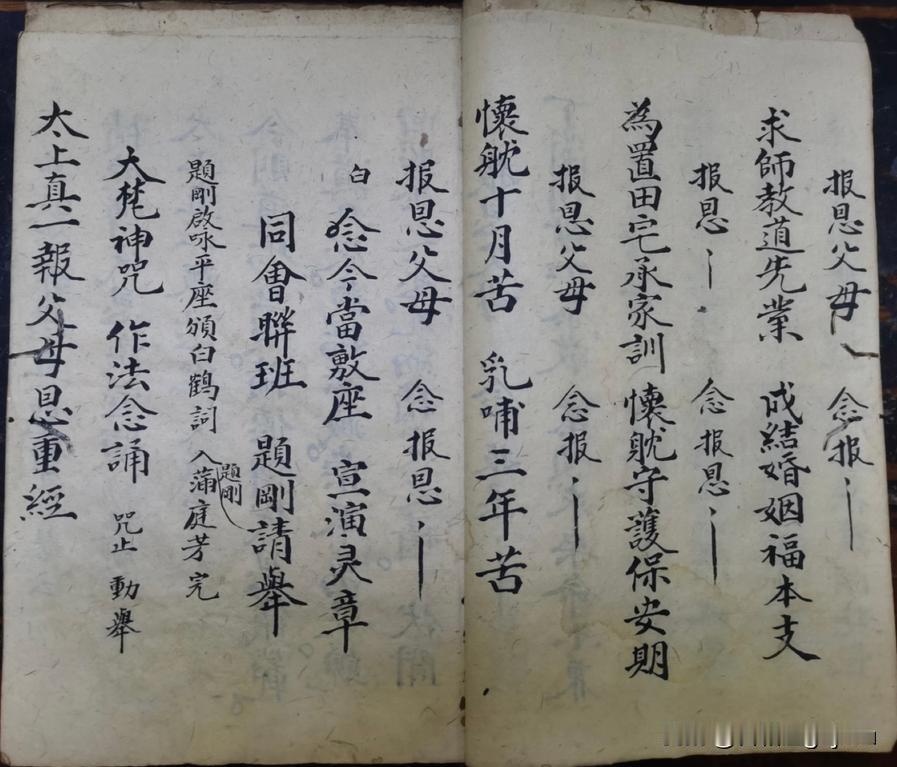 报恩父母 念报
求師教道先業 成結婚姻福本支
报恩 念报恩
為置田宅承家訓 懷躭守護保安期
报恩父母 念报
懷躭十月苦 乳哺三年苦
报恩父母 念报恩
白 念今當敷座 宣演灵章
同會聯班 題剛請舉
題剛啟咏平座頒白鶴詞 入蒲庭芳 完
題剛
大梵神咒 作法念誦 咒止 動舉
太上真一報父母恩重經